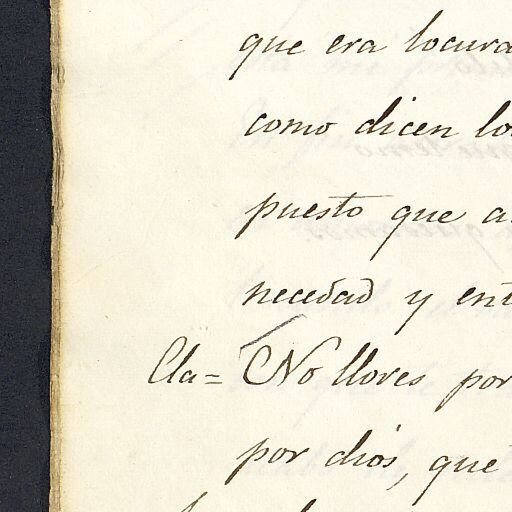 que era locura
como dicen los
puesto que a
necedad y ent
Cla= No llores por
por dios, que